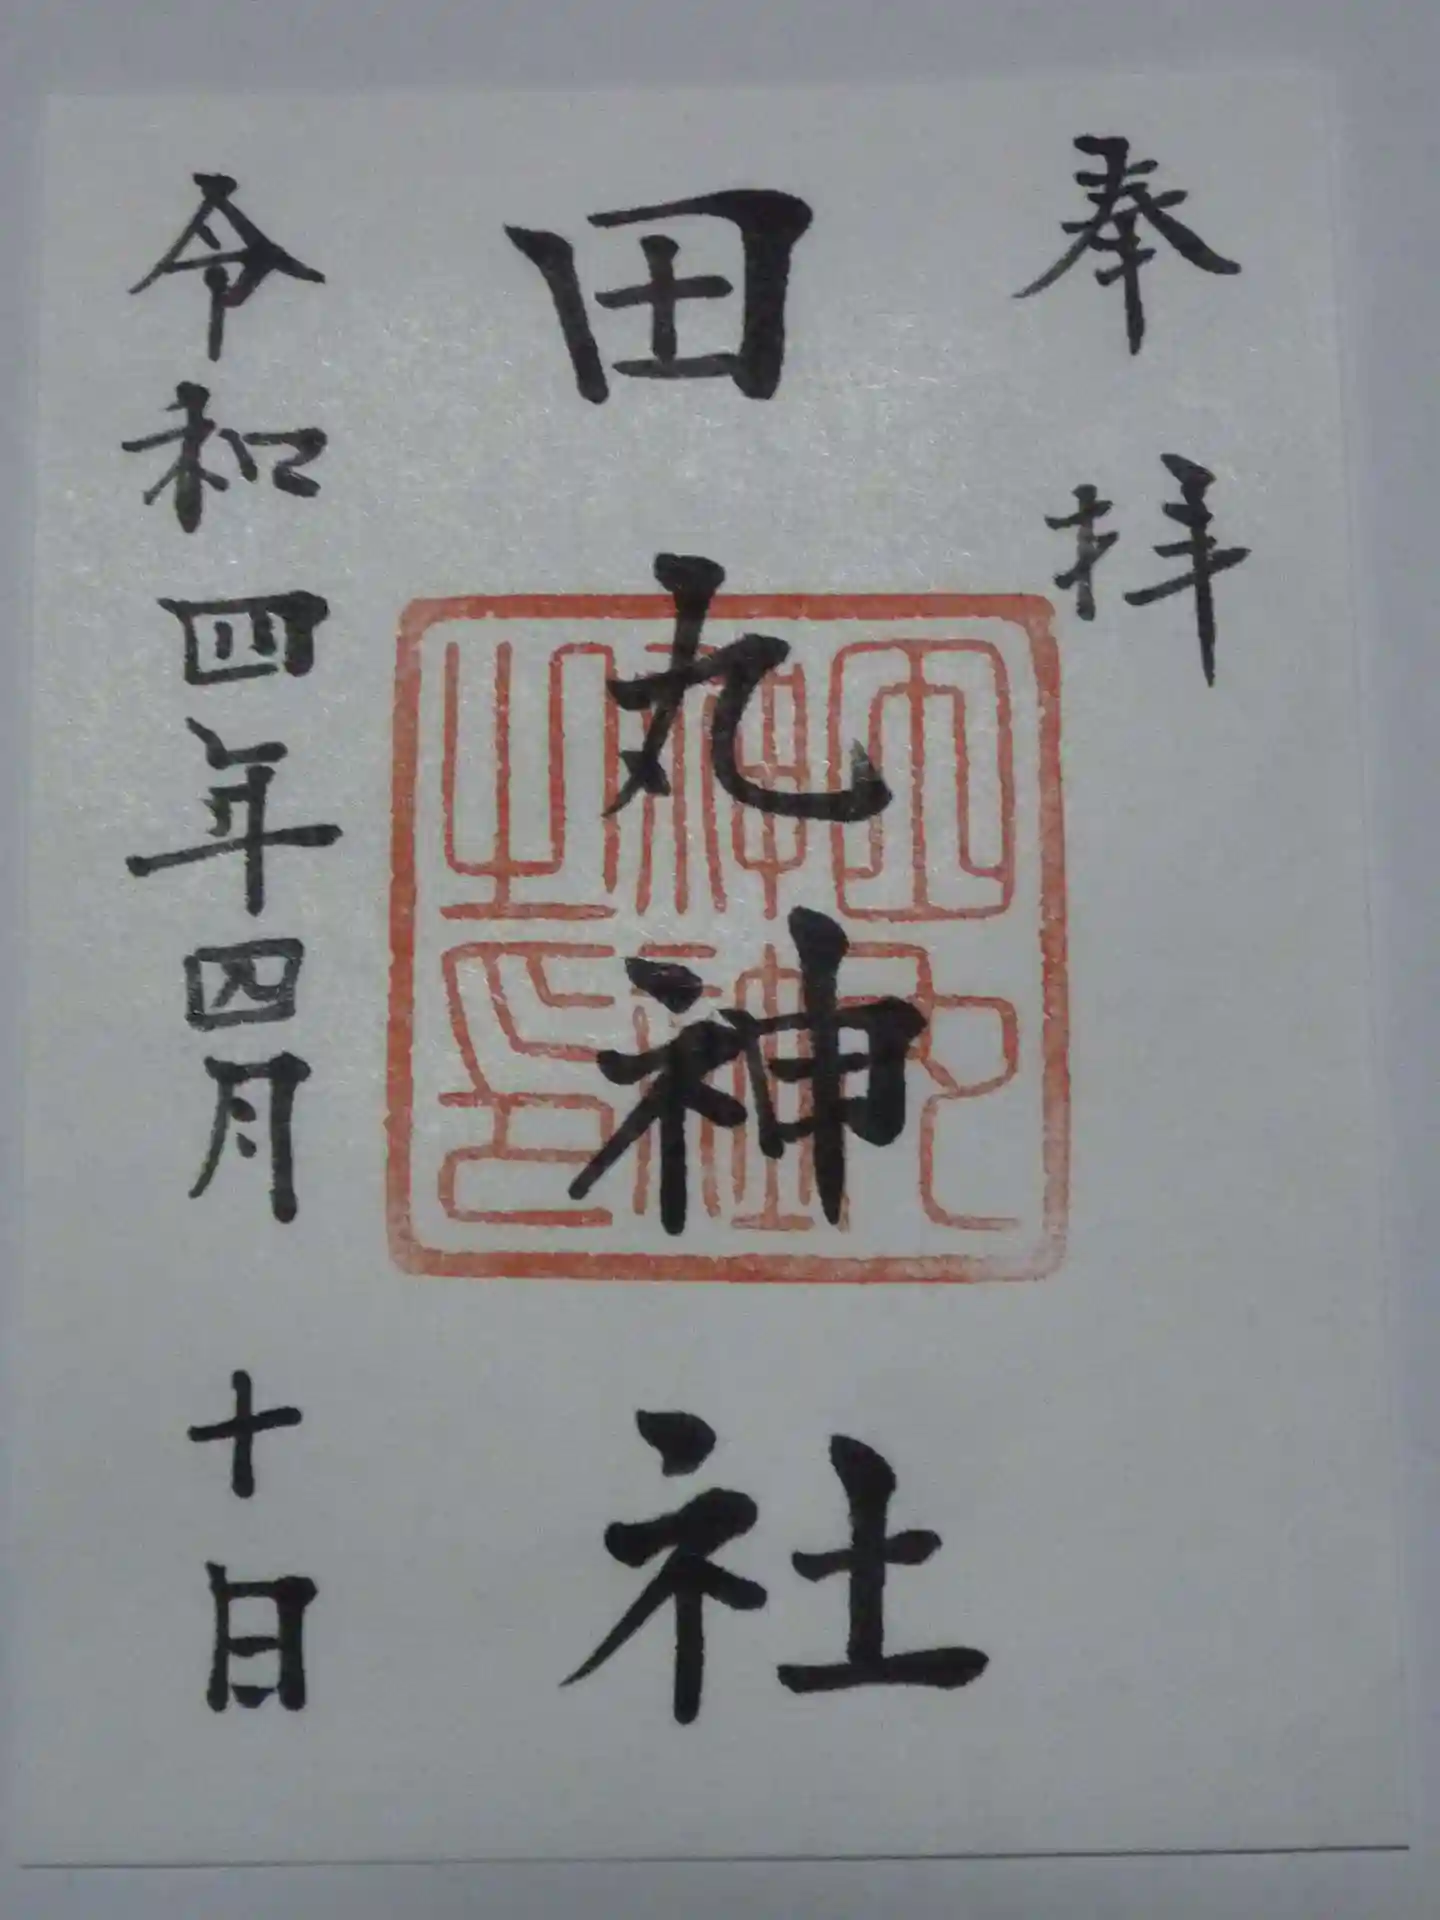 奉拝
田丸神社
田丸神社之印
令和四年四月十日